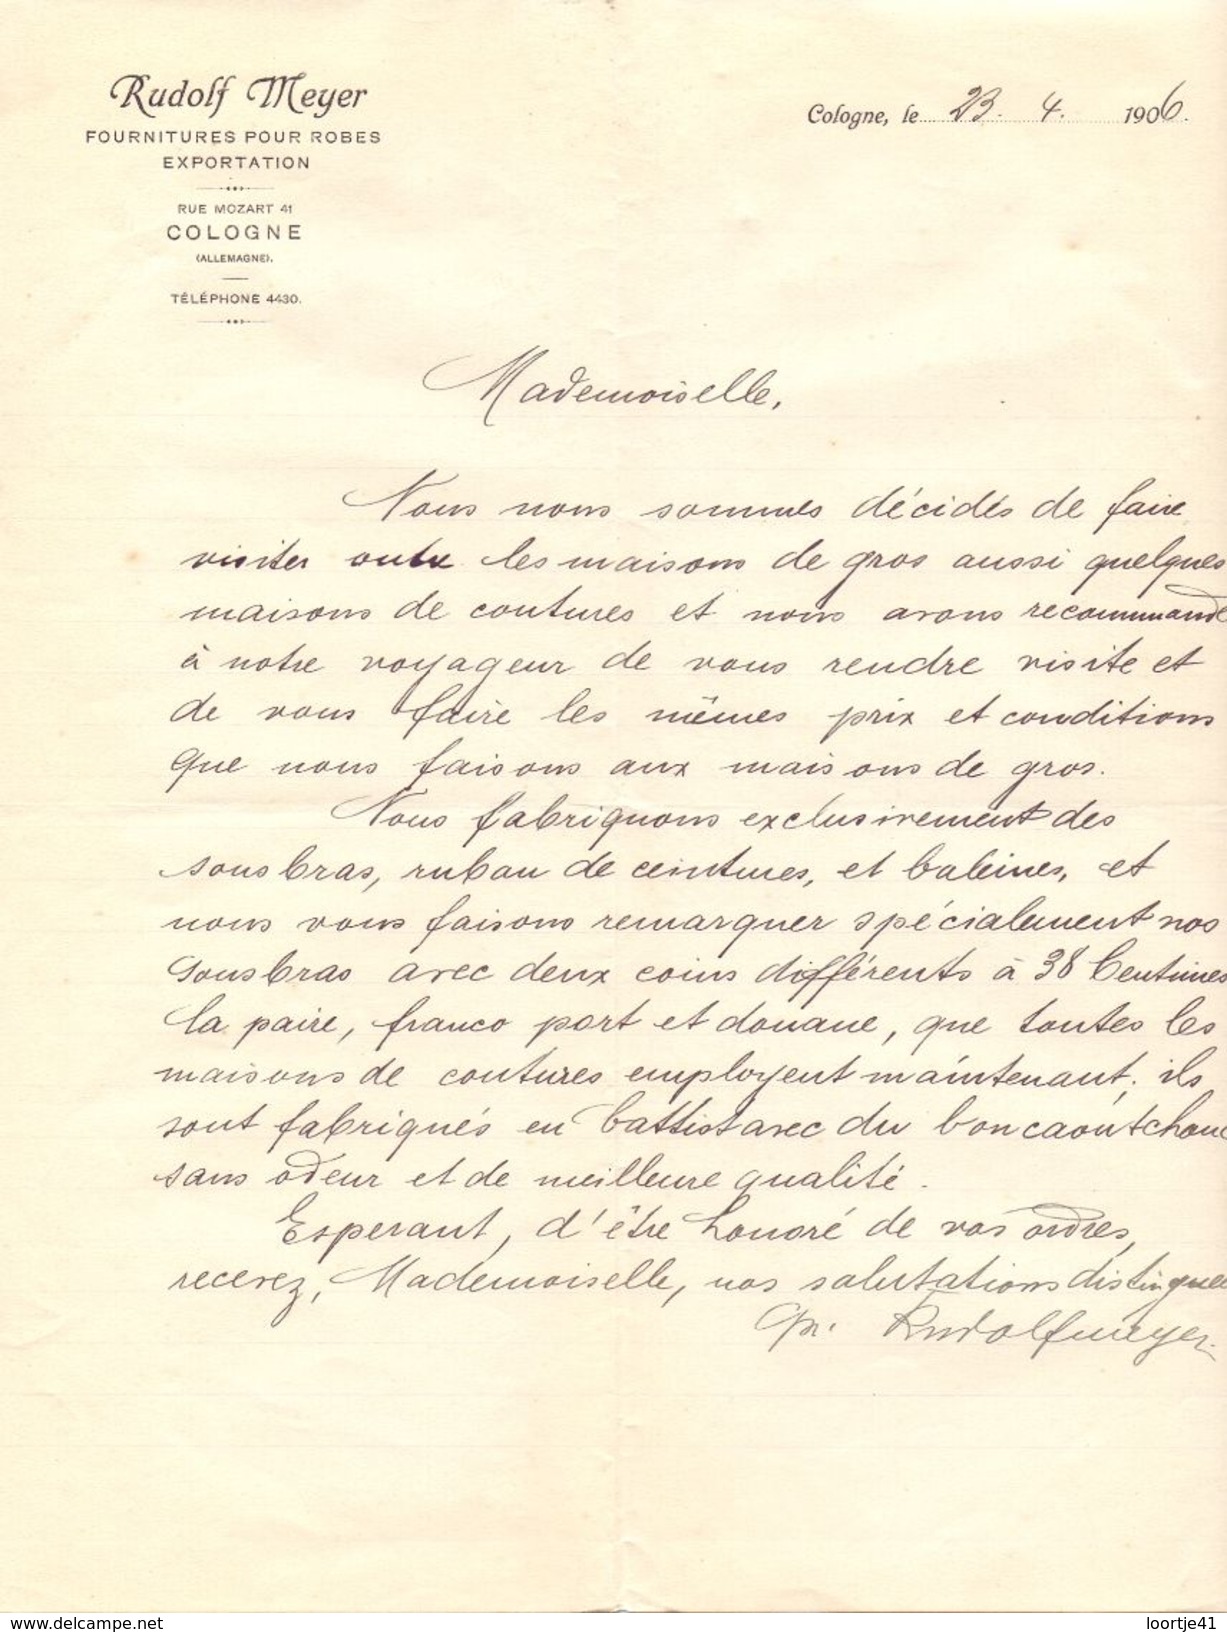 Rudolf Meyer
FOURNITURES POUR ROBES
EXPORTATION
RUE MOZART 41
COLOGNE
(ALLEMAGNE).
TÉLÉPHONE 4430.
Cologne, le 23. 4. 1906.
Mademoiselle,
Nous nous sommes décidés de faire
visiter outre les maisons de gros aussi quelques
maisons de coutures et nous avons recommandé
à notre voyageur de vous rendre visite et
de vous faire les mêmes prix et conditions
que nous faisons aux maisons de gros.
Nous fabriquons exclusivement des
sousbras, ruban de ceintures, et baleines, et
nous vous faisons remarquer spécialement nos
sousbras avec deux coins différents à 38 Centimes
la paire, franco port et douane, que toutes les
maisons de coutures employent maintenant; ils
sont fabriqués en battist avec du bon caoutchouc
sans odeur et de meilleure qualité.
Esperant, d'être honoré de vos ordres,
recevez, Mademoiselle, nos salutations distinguée
Rudolf Meyer.
www.delcampe.net
loortje41